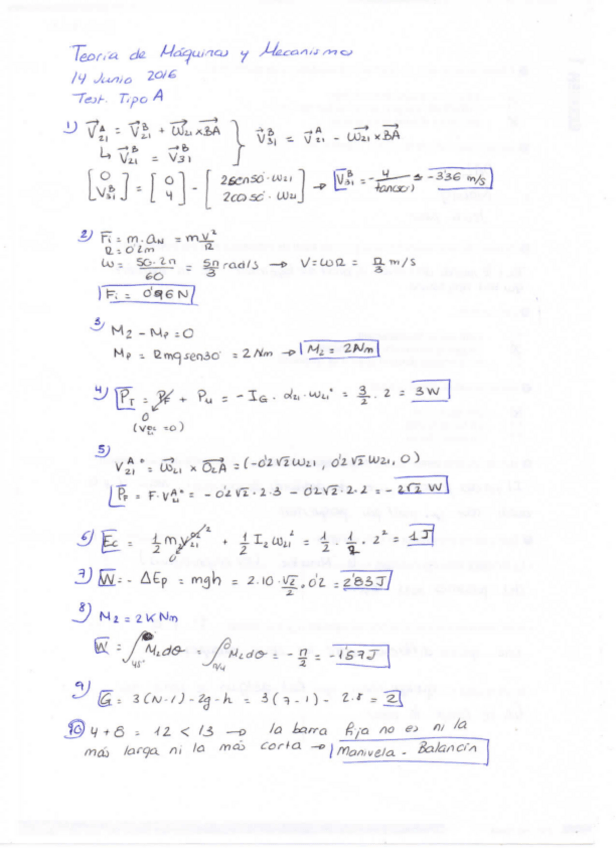 Teoría de Máquinas y Mecanismos
14 Junio 2016
Test. Tipo A
1) V⃗²¹ᴬ = V⃗²¹ᴮ + ω⃗₂₁ × BA⃗ } V⃗³¹ᴮ = V⃗²¹ᴬ - ω⃗₂₁ × BA⃗
↳ V⃗²¹ᴮ = V⃗³¹ᴮ
[0 V³¹ᴮ] = [0 4] - [2 sen50·ω₂₁ 2 cos50·ω₂₁] → V³¹ᴮ = - 4/tan(50) = -3'36 m/s
2) Fi = m·aN = m v²/R
R = 0'2m
ω = 50·2π/60 = 5π/3 rad/s → V = ωR = π/3 m/s
Fi = 0'96 N
3) M2 - Mp = 0
Mp = Rmg sen30 = 2 Nm → M2 = 2 Nm
4) PT = PF + PU = - IG · α21 · ω21 = 3/2 · 2 = 3W
0
5)
V21ᴬ = ω⃗21 × O2A⃗ = (-0'2√2 ω21, 0'2√2 ω21, 0)
Pp = F·V21ᴬ = -0'2√2·2·3 - 0'2√2·2·2 = -2√2 W
6) Ec = 1/2 m2 v21² + 1/2 I2 ω21² = 1/2 · 1/2 · 2² = 1J
0
7) W = - ΔEp = mgh = 2·10·√2/2·0'2 = 2'83 J
8) M2 = 2K Nm
W = ∫45° M2dθ · ∫π/4 M2dθ = - π/2 = -1'57J
9) G = 3(N-1) - 2g - h = 3(7-1) - 2·8 = 2
10) 4 + 8 = 12 < 13 → la barra fija no es ni la
más larga ni la más corta → Manivela - Balancín